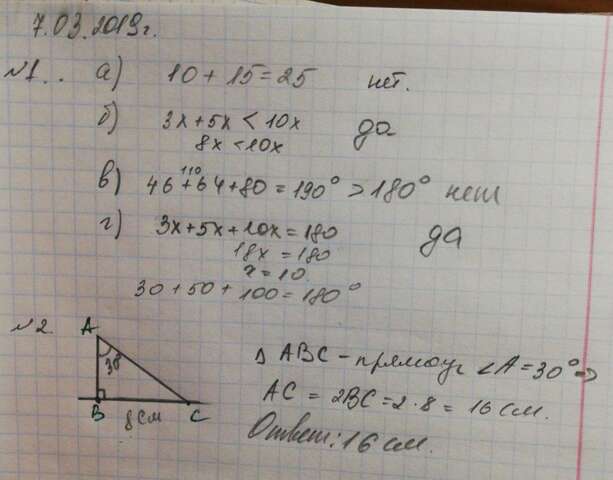 7.03.2019г.
№1.. а) 10 + 15 = 25 нет.
б) 3x+5x < 10x да
8x < 10x
110
в) 46+64+80 = 190° > 180° нет
г) 3x+5x+10x = 180 да
18x = 180
x = 10
30 + 50 + 100 = 180°
№2.
A
30°
B 8см C
Δ ABC - прямоуг ∠A = 30° ⇒
AC = 2BC = 2·8 = 16 см.
Ответ: 16 см.